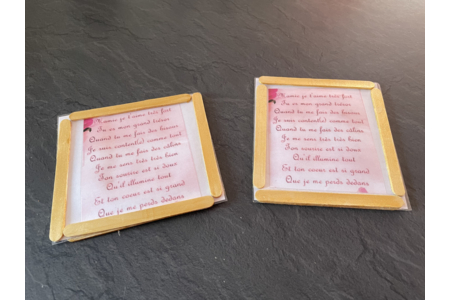 Mamie je t'aime très fort
Tu es mon grand trésor
Quand tu me fais des bisous
Je suis contentŒl comme tout
Quand tu me fais des câlins
Je me sens très très bien
Ton sourire est si doux
Qu'il illumine tout
Et ton coeur est si grand
Que je me perds dedans
Mamie je t'aime très fort
Tu es mon grand trésor
Quand tu me fais des bisous
Je suis comme tout
Quand tu me fais des câlins
Je me sens très très bien
Ton sourire est si doux
Qu'il illumine tout
Et ton coeur est si grand
Que je me perds dedans